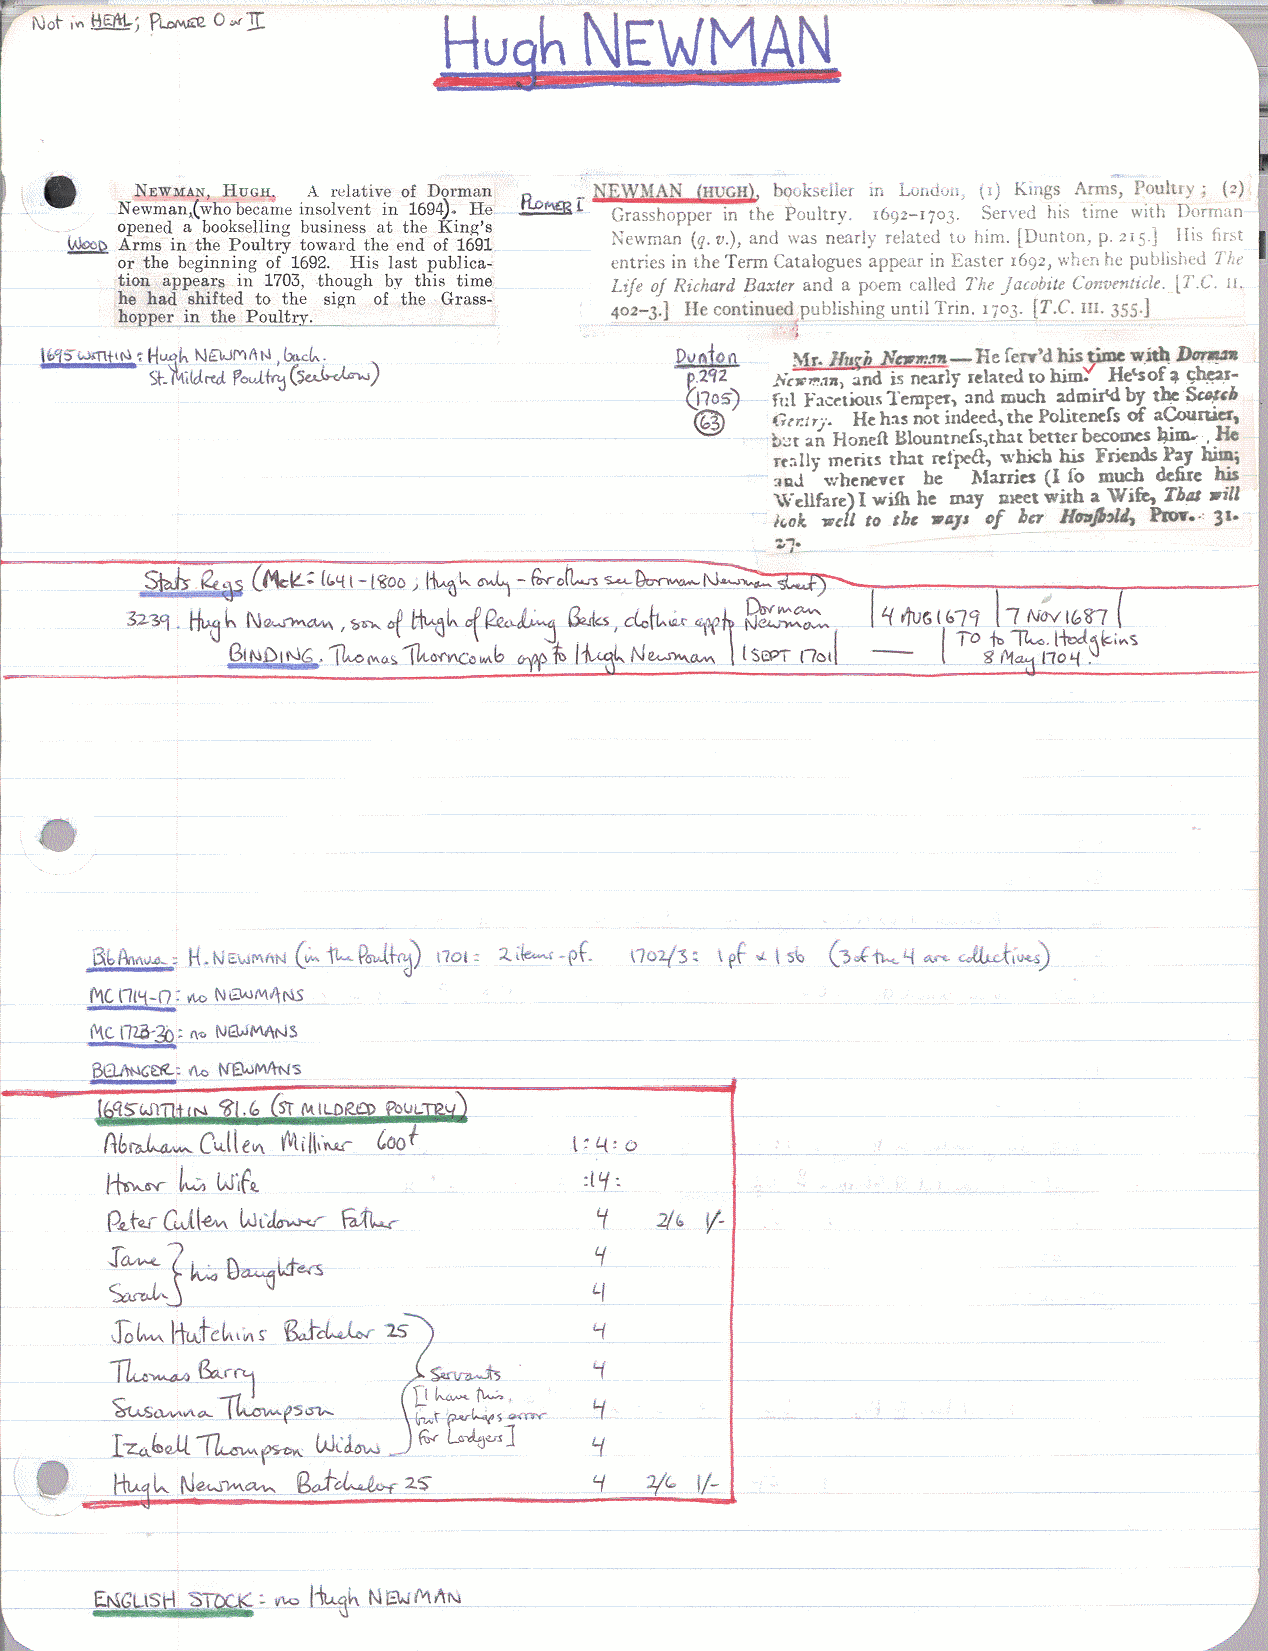 Not in HEAL; PLOMER O or II
Hugh NEWMAN
NEWMAN, HUGH. A relative of Dorman
Newman,(who became insolvent in 1694). He
opened a bookselling business at the King's
Wood Arms in the Poultry toward the end of 1691
or the beginning of 1692. His last publica-
tion appears in 1703, though by this time
he had shifted to the sign of the Grass-
hopper in the Poultry.
PLOMER I
NEWMAN (HUGH), bookseller in London, (1) Kings Arms, Poultry; (2)
Grasshopper in the Poultry. 1692-1703. Served his time with Dorman
Newman (q. v.), and was nearly related to him. [Dunton, p. 215.] His first
entries in the Term Catalogues appear in Easter 1692, when he published The
Life of Richard Baxter and a poem called The Jacobite Conventicle. [T.C. II.
402-3.] He continued publishing until Trin. 1703. [T.C. III. 355.]
1695 WITHIN: Hugh NEWMAN, bach.
St. Mildred Poultry (See below)
Dunton
p.292
(1705)
63
Mr. Hugh Newman—He ſerv'd his time with Dorman
Newman, and is nearly related to him. He's of a chear-
ful Facetious Temper, and much admir'd by the Scotch
Gentry. He has not indeed, the Politeneſs of a Courtier,
but an Honeſt Blountneſs, that better becomes him. He
really merits that reſpect, which his Friends Pay him;
and whenever he Marries (I ſo much deſire his
Wellfare) I wiſh he may meet with a Wife, That will
look well to the ways of her Houſhold, Prov. 31.
27.
Stats Regs (McK: 1641-1800; Hugh only - for others see Dorman Newman sheet)
3239. Hugh Newman, son of Hugh of Reading Berks, clothier app to Dorman Newman | 4 AUG 1679 | 7 NOV 1687 |
BINDING. Thomas Thorncomb app to Hugh Newman | 1 SEPT 1701 | — | TO to Tho. Hodgkins
8 May 1704.
Bib Annua: H. NEWMAN (in the Poultry) 1701: 2 items - pf. 1702/3: 1 pf & 1 sb (3 of the 4 are collectives)
MC 1714-17: no NEWMANS
MC 1723-30: no NEWMANS
BELANGER: no NEWMANS
1695 WITHIN 81.6 (ST MILDRED POULTRY)
Abraham Cullen Milliner 600£ 1:4:0
Honor his Wife :14:
Peter Cullen Widower Father 4 2/6 1/-
Jane } his Daughters 4
Sarah 4
John Hutchins Batchelor 25 4
Thomas Barry Servants 4
Susanna Thompson [I have this, but perhaps error 4
Izabell Thompson Widow for Lodgers] 4
Hugh Newman Batchelor 25 4 2/6 1/-
ENGLISH STOCK: no Hugh NEWMAN